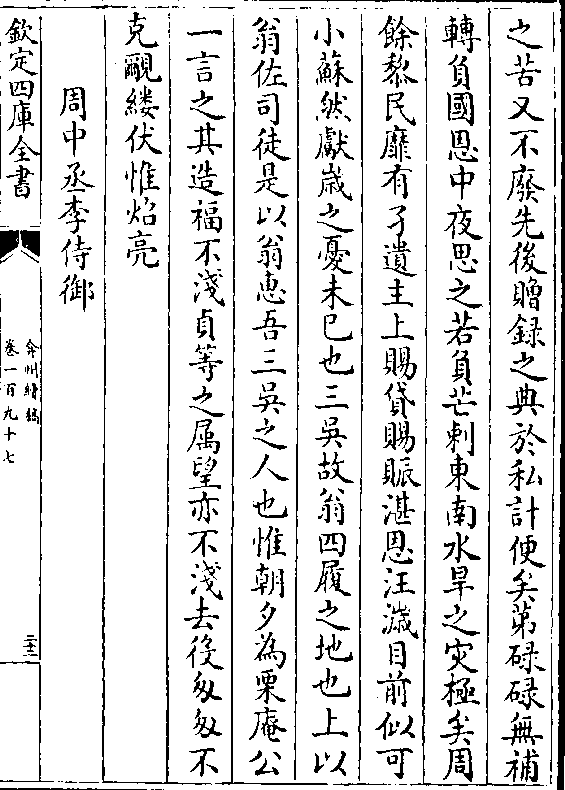 之苦又不廢先後贈録之典於私計便矣第碌碌無補
轉負國恩中夜思之若負芒刺東南水旱之灾極矣周
餘黎民靡有孑遺主上賜貸賜賑湛恩汪濊目前似可
小蘇然獻歳之憂未已也三吳故翁四履之地也上以
翁佐司徒是以翁恵吾三吳之人也惟朝夕為栗庵公
一言之其造福不淺貞等之属望亦不淺去役匆匆不
克覼縷伏惟焰亮
周中丞李侍御
欽定四庫全書
弇州續稿
卷一百九十七
二十二